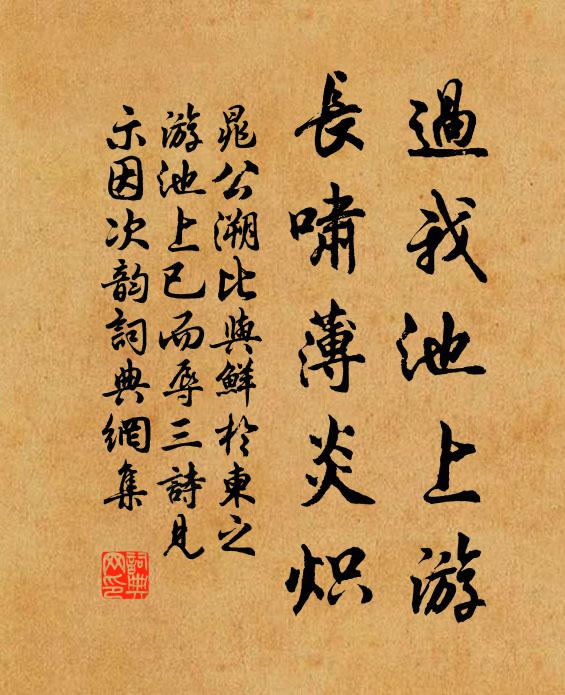 過我池上游
長嘯薄炎熾
晁公溯比與鮮於東之
游池上已而辱三詩見
示因次韵詞典網集
詞典網印